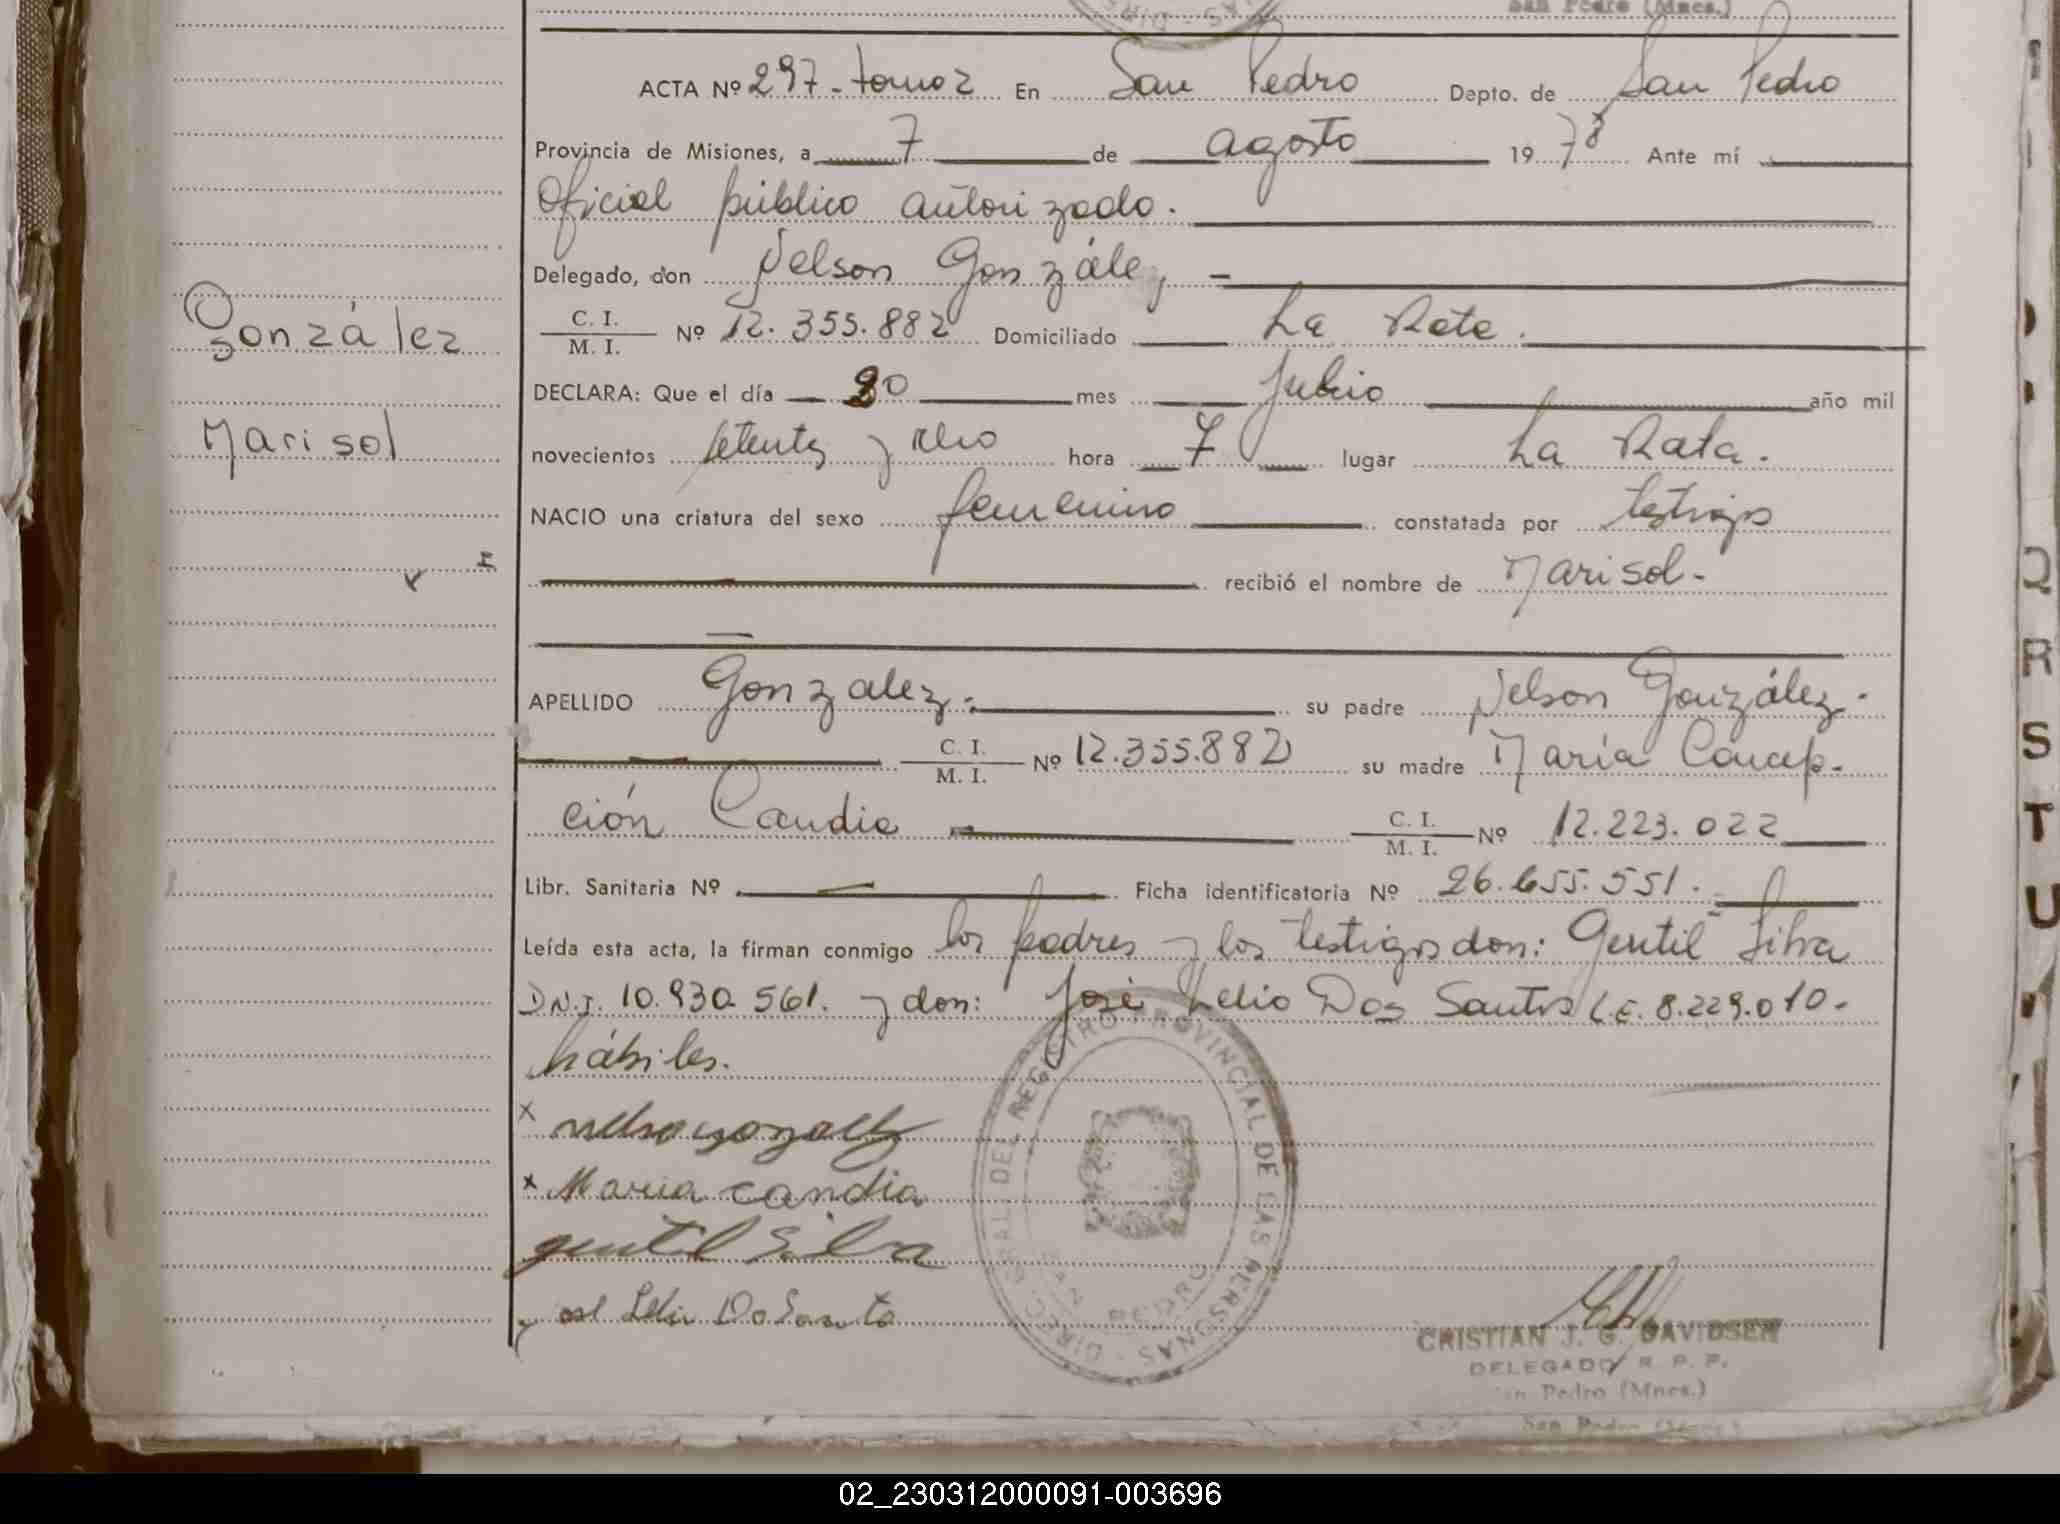 San Pedro (Mnes.)
ACTA Nº 297 - tomo 2 En San Pedro Depto. de San Pedro
Provincia de Misiones, a 7 de agosto 1978 Ante mí
Oficial público autorizado.
Delegado, don Nelson González
C. I. / M. I. Nº 12.355.882 Domiciliado La Rata.
González
DECLARA: Que el día 30 mes Julio año mil
Marisol
novecientos setenta y ocho hora 7 lugar La Rata.
NACIO una criatura del sexo femenino constatada por testigos
recibió el nombre de Marisol.
APELLIDO Gonzalez. su padre Nelson González.
C. I. / M. I. Nº 12.355.882 su madre María Concep-
ción Candia C. I. / M. I. Nº 12.223.022
Libr. Sanitaria Nº Ficha identificatoria Nº 26.655.551.
Leída esta acta, la firman conmigo los padres y los testigos don: Gentil Silva
D.N.I. 10.930.561. y don: José Lelio Dos Santos L.E. 8.229.010.
hábiles.
x nelso gonzalez
x Maria candia
gentil Silva
José Lelio Do Santo
DIREC. GRAL. DEL REGISTRO PROVINCIAL DE LAS PERSONAS - SAN PEDRO
CRISTIAN J. G. DAVIDSEN
DELEGADO R. P. P.
San Pedro (Mnes.)
Q
R
S
T
U
02_230312000091-003696